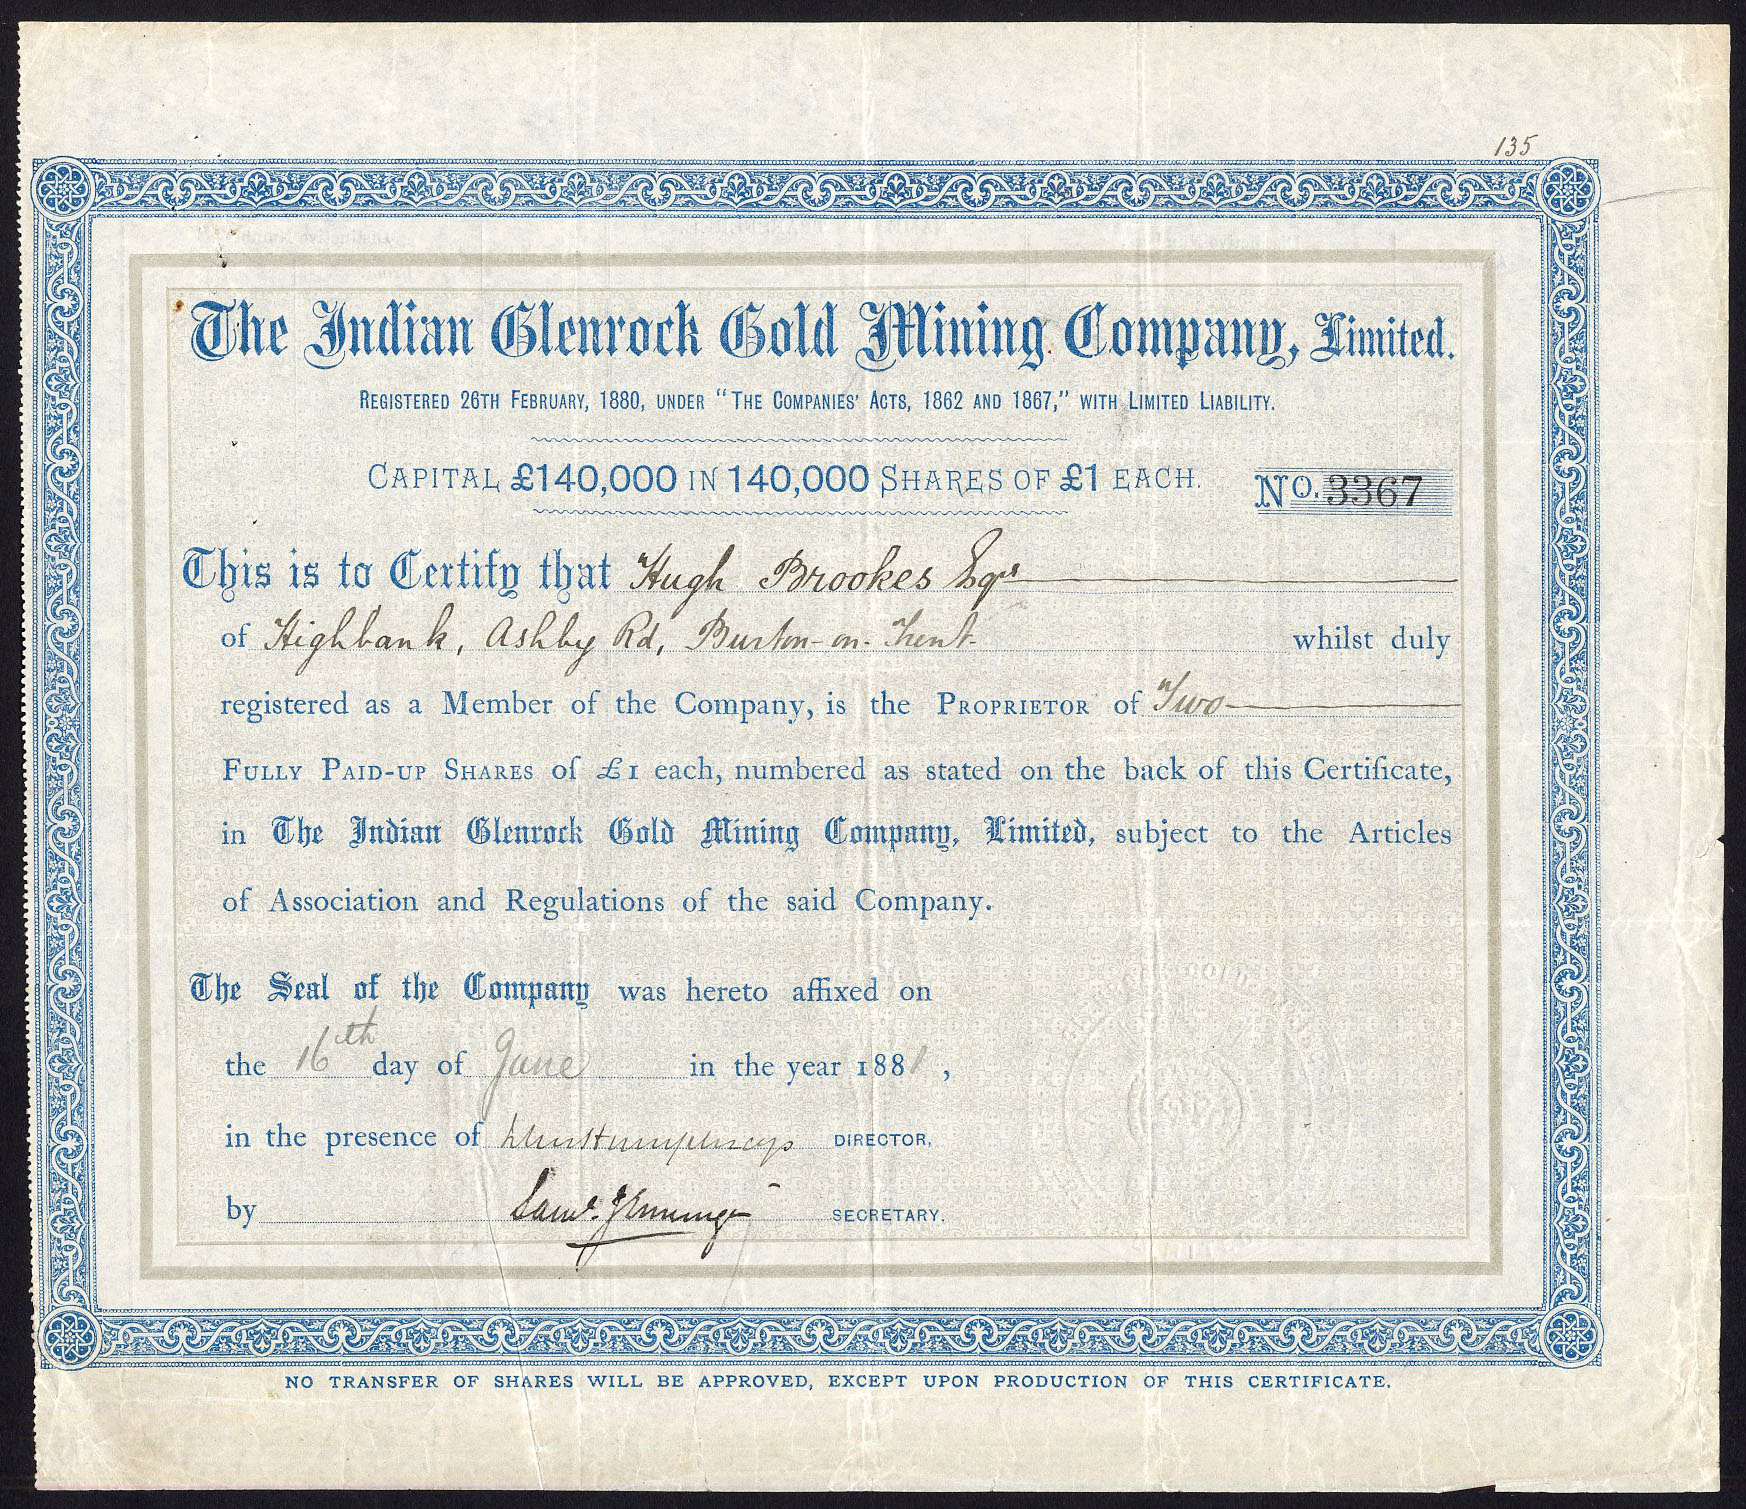 135
The Indian Glenrock Gold Mining Company, Limited.
REGISTERED 26TH FEBRUARY, 1880, UNDER "THE COMPANIES' ACTS, 1862 AND 1867," WITH LIMITED LIABILITY.
CAPITAL £140,000 IN 140,000 SHARES OF £1 EACH.
No. 3367
This is to Certify that Hugh Brookes Esqr
of Highbank, Ashby Rd, Burton-on-Trent whilst duly
registered as a Member of the Company, is the PROPRIETOR of Two
FULLY PAID-UP SHARES of £1 each, numbered as stated on the back of this Certificate,
in The Indian Glenrock Gold Mining Company, Limited, subject to the Articles
of Association and Regulations of the said Company.
The Seal of the Company was hereto affixed on
the 16th day of June in the year 1881,
in the presence of DIRECTOR,
by Saml. Jennings SECRETARY.
NO TRANSFER OF SHARES WILL BE APPROVED, EXCEPT UPON PRODUCTION OF THIS CERTIFICATE.